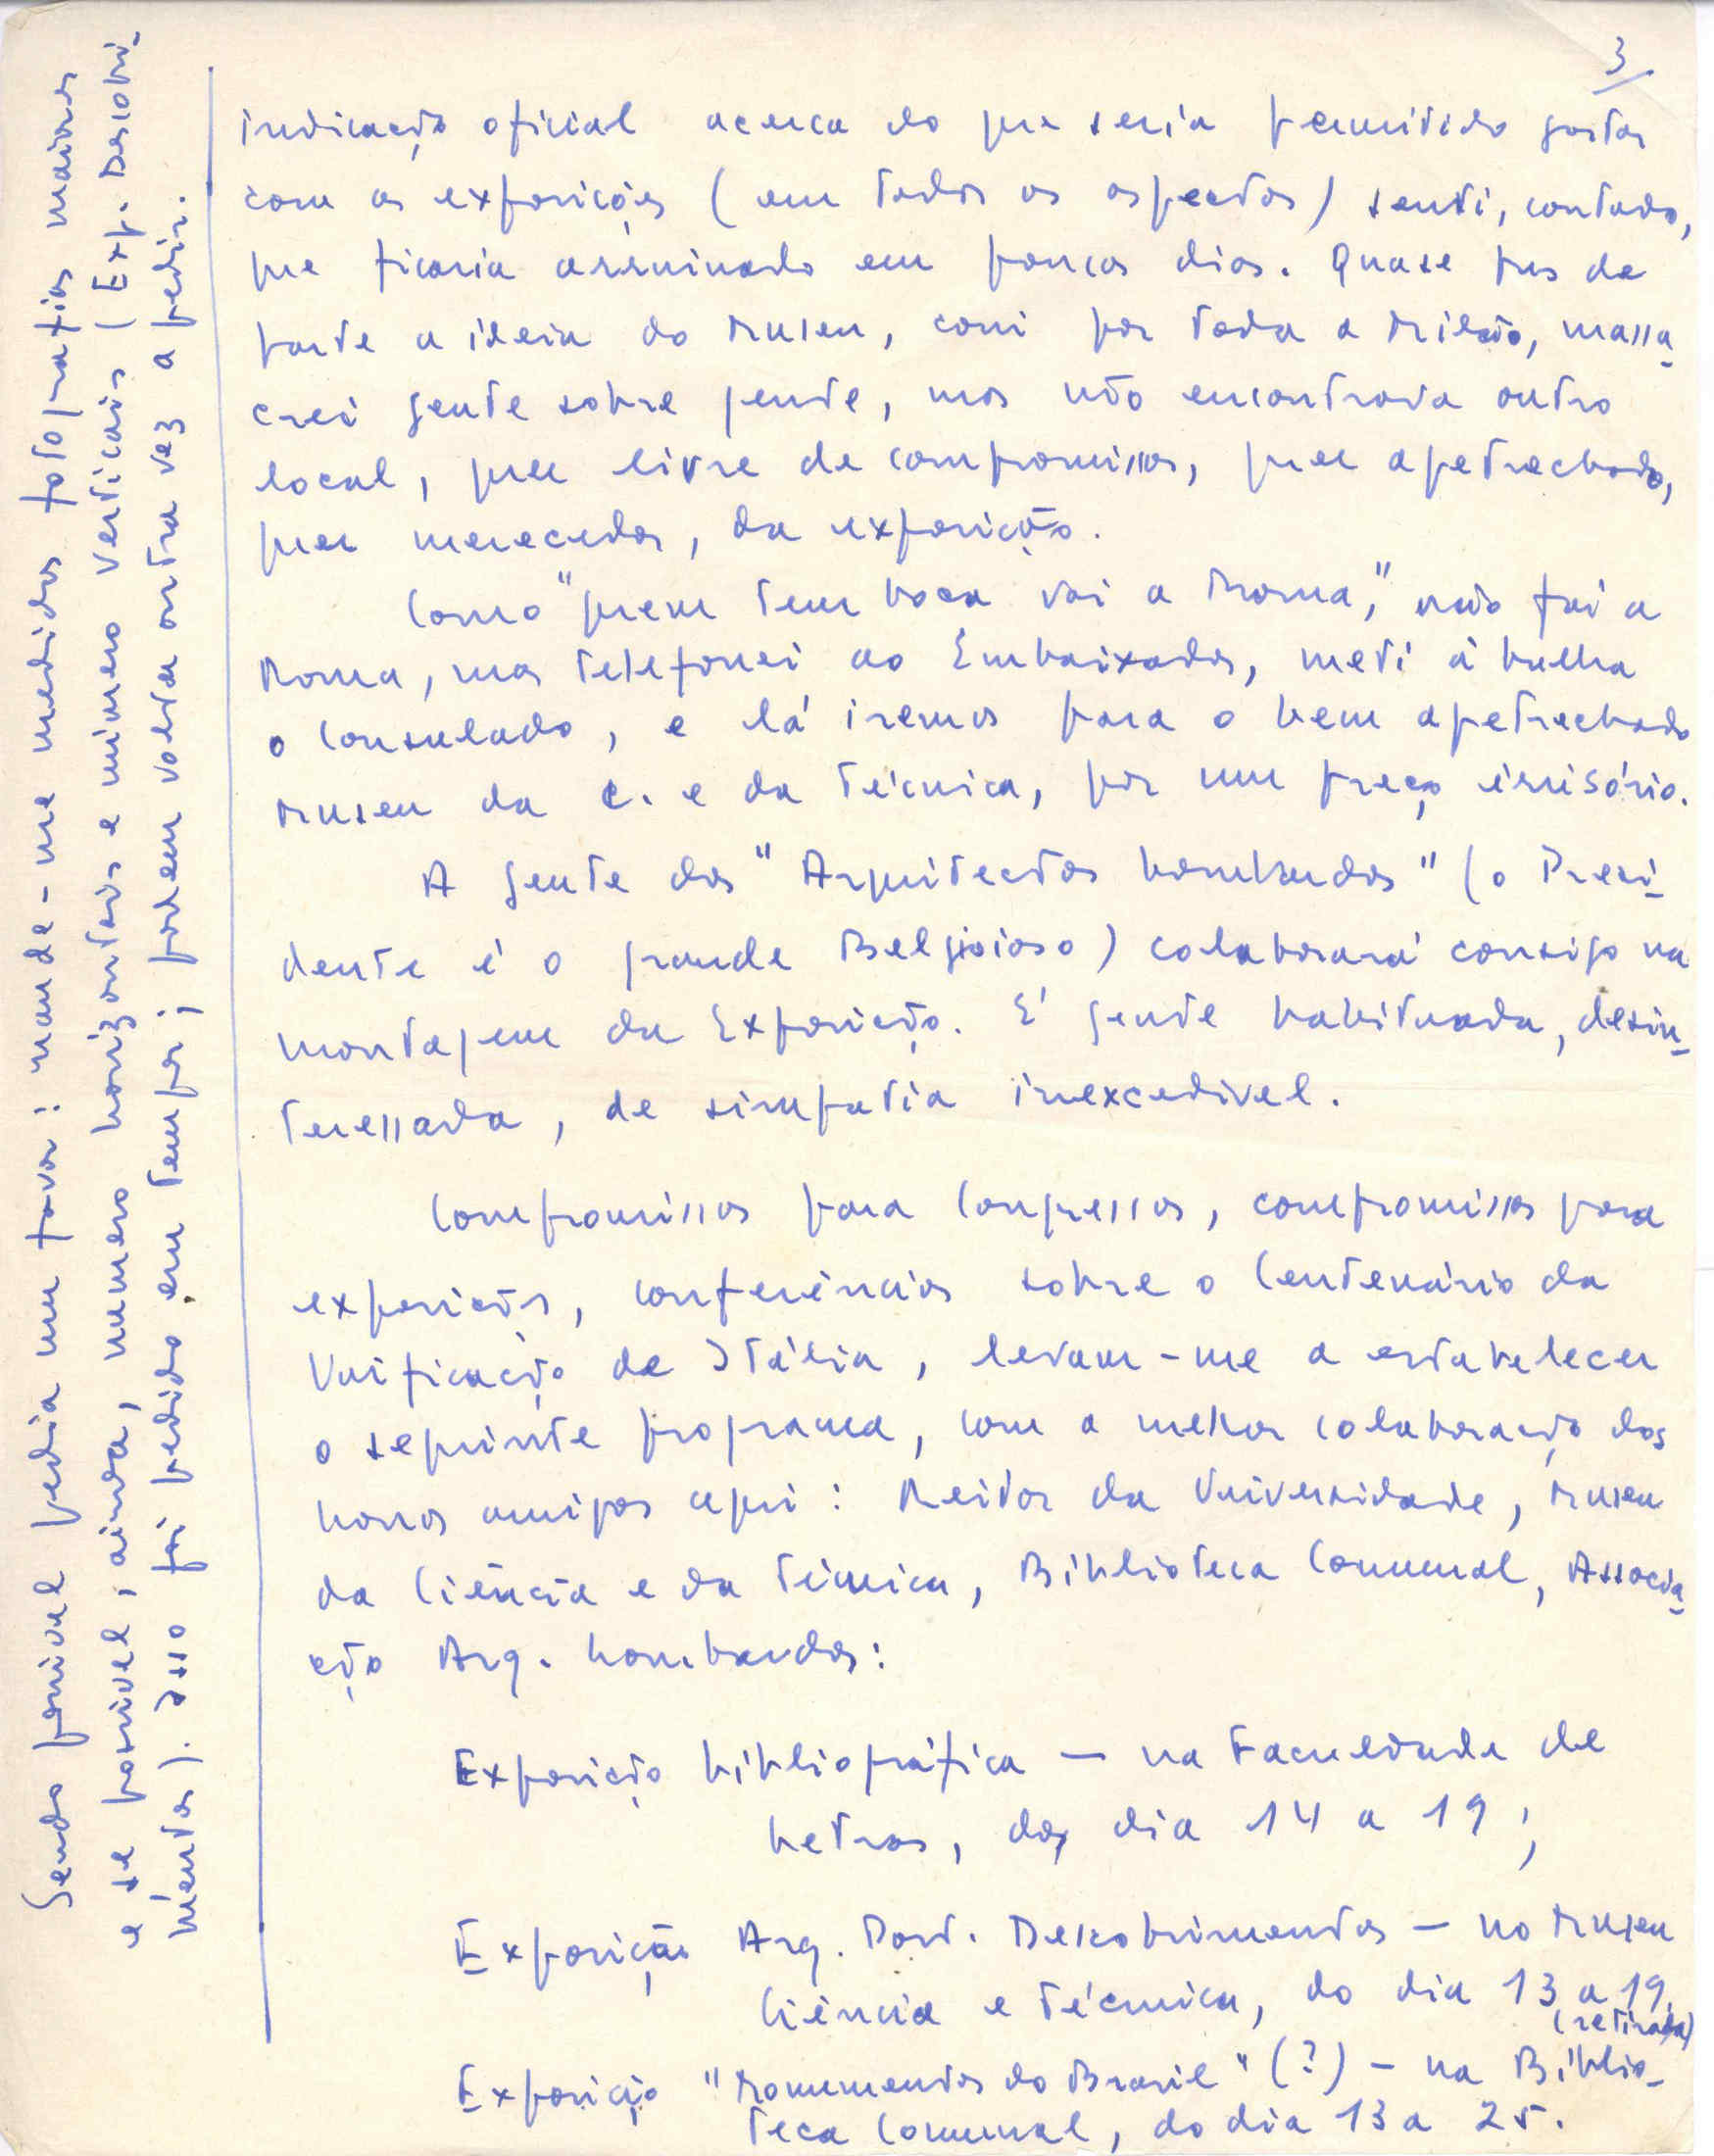 3
indicação oficial acerca do que seria permitido gastar
com as exposições (em todos os aspectos) senti, contudo,
que ficaria assassinado em poucos dias. Quase pus de
parte a ideia do Museu, corri por toda a Milão, massa-
crei gente sobre gente, mas não encontrava outro
local, quer livre de compromissos, quer apetrechado,
quer merecedor, da exposição.
Como "quem tem boca vai a Roma", não fui a
Roma, mas telefonei ao Embaixador, meti à bulha
o Consulado, e lá iremos para o bem apetrechado
Museu da C. e da Técnica, por um preço irrisório.
A gente dos "Arquitectos Lombardos" (o Presi-
dente é o grande Belgioioso) colaborará consigo na
montagem da Exposição. É gente habituada, desin-
teressada, de simpatia inexcedivel.
Compromissos para Congressos, compromissos para
exposições, conferências sobre o Centenário da
Unificação de Itália, levam-me a estabelecer
o seguinte programa, com a melhor colaboração dos
nossos amigos aqui: Reitor da Universidade, Museu
da Ciência e da Técnica, Biblioteca Comunal, Associa-
ção Arq. Lombardos:
Exposição bibliográfica — na Faculdade de
Letras, do dia 14 a 19;
Exposição Arq. Port. Descobrimentos — no Museu
Ciência e Técnica, do dia 13 a 19.
(retirada)
Exposição "Monumentos do Brasil" (?) — na Biblio-
teca Comunal, do dia 13 a 25.
Sendo possível pedia um favor: mande-me medidas fotografias maiores
e se possivel, ainda, numero horizontais e número verticais (Exp. Descobri-
mentos). Isso foi pedido em tempos; podem voltar outra vez a pedir.